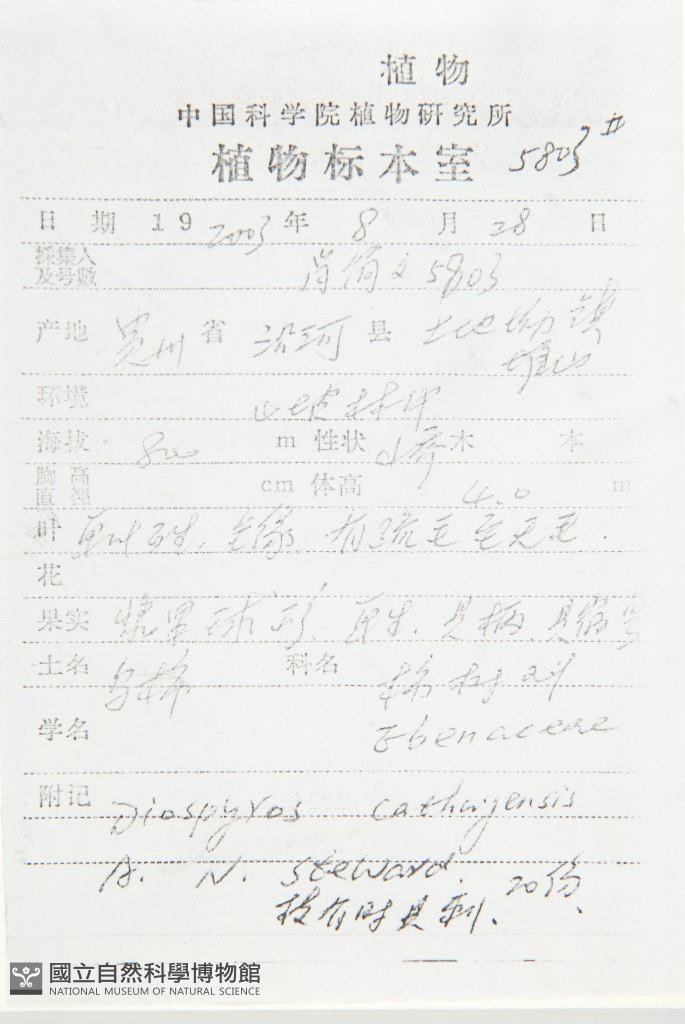 植物
中国科学院植物研究所
植物标本室 5803#
日 期 19 2003 年 8 月 28 日
採集人
及号数 肖简文 5803
产地 贵州 省 沿河 县 土地坳 镇
环境 山坡林中
海拔 800 m 性状 小乔木 本
胸高
直徑 cm 体高 4.0 m
叶 单叶互生, 全缘, 有疏毛至无毛.
花
果实 浆果球形, 单生, 具柄, 具宿萼
土名 乌柿 科名 柿树科
学名 Ebenaceae
附记 Diospyros cathayensis
A. N. Steward.
枝有时具刺、20份、
國立自然科學博物館
NATIONAL MUSEUM OF NATURAL SCIENCE